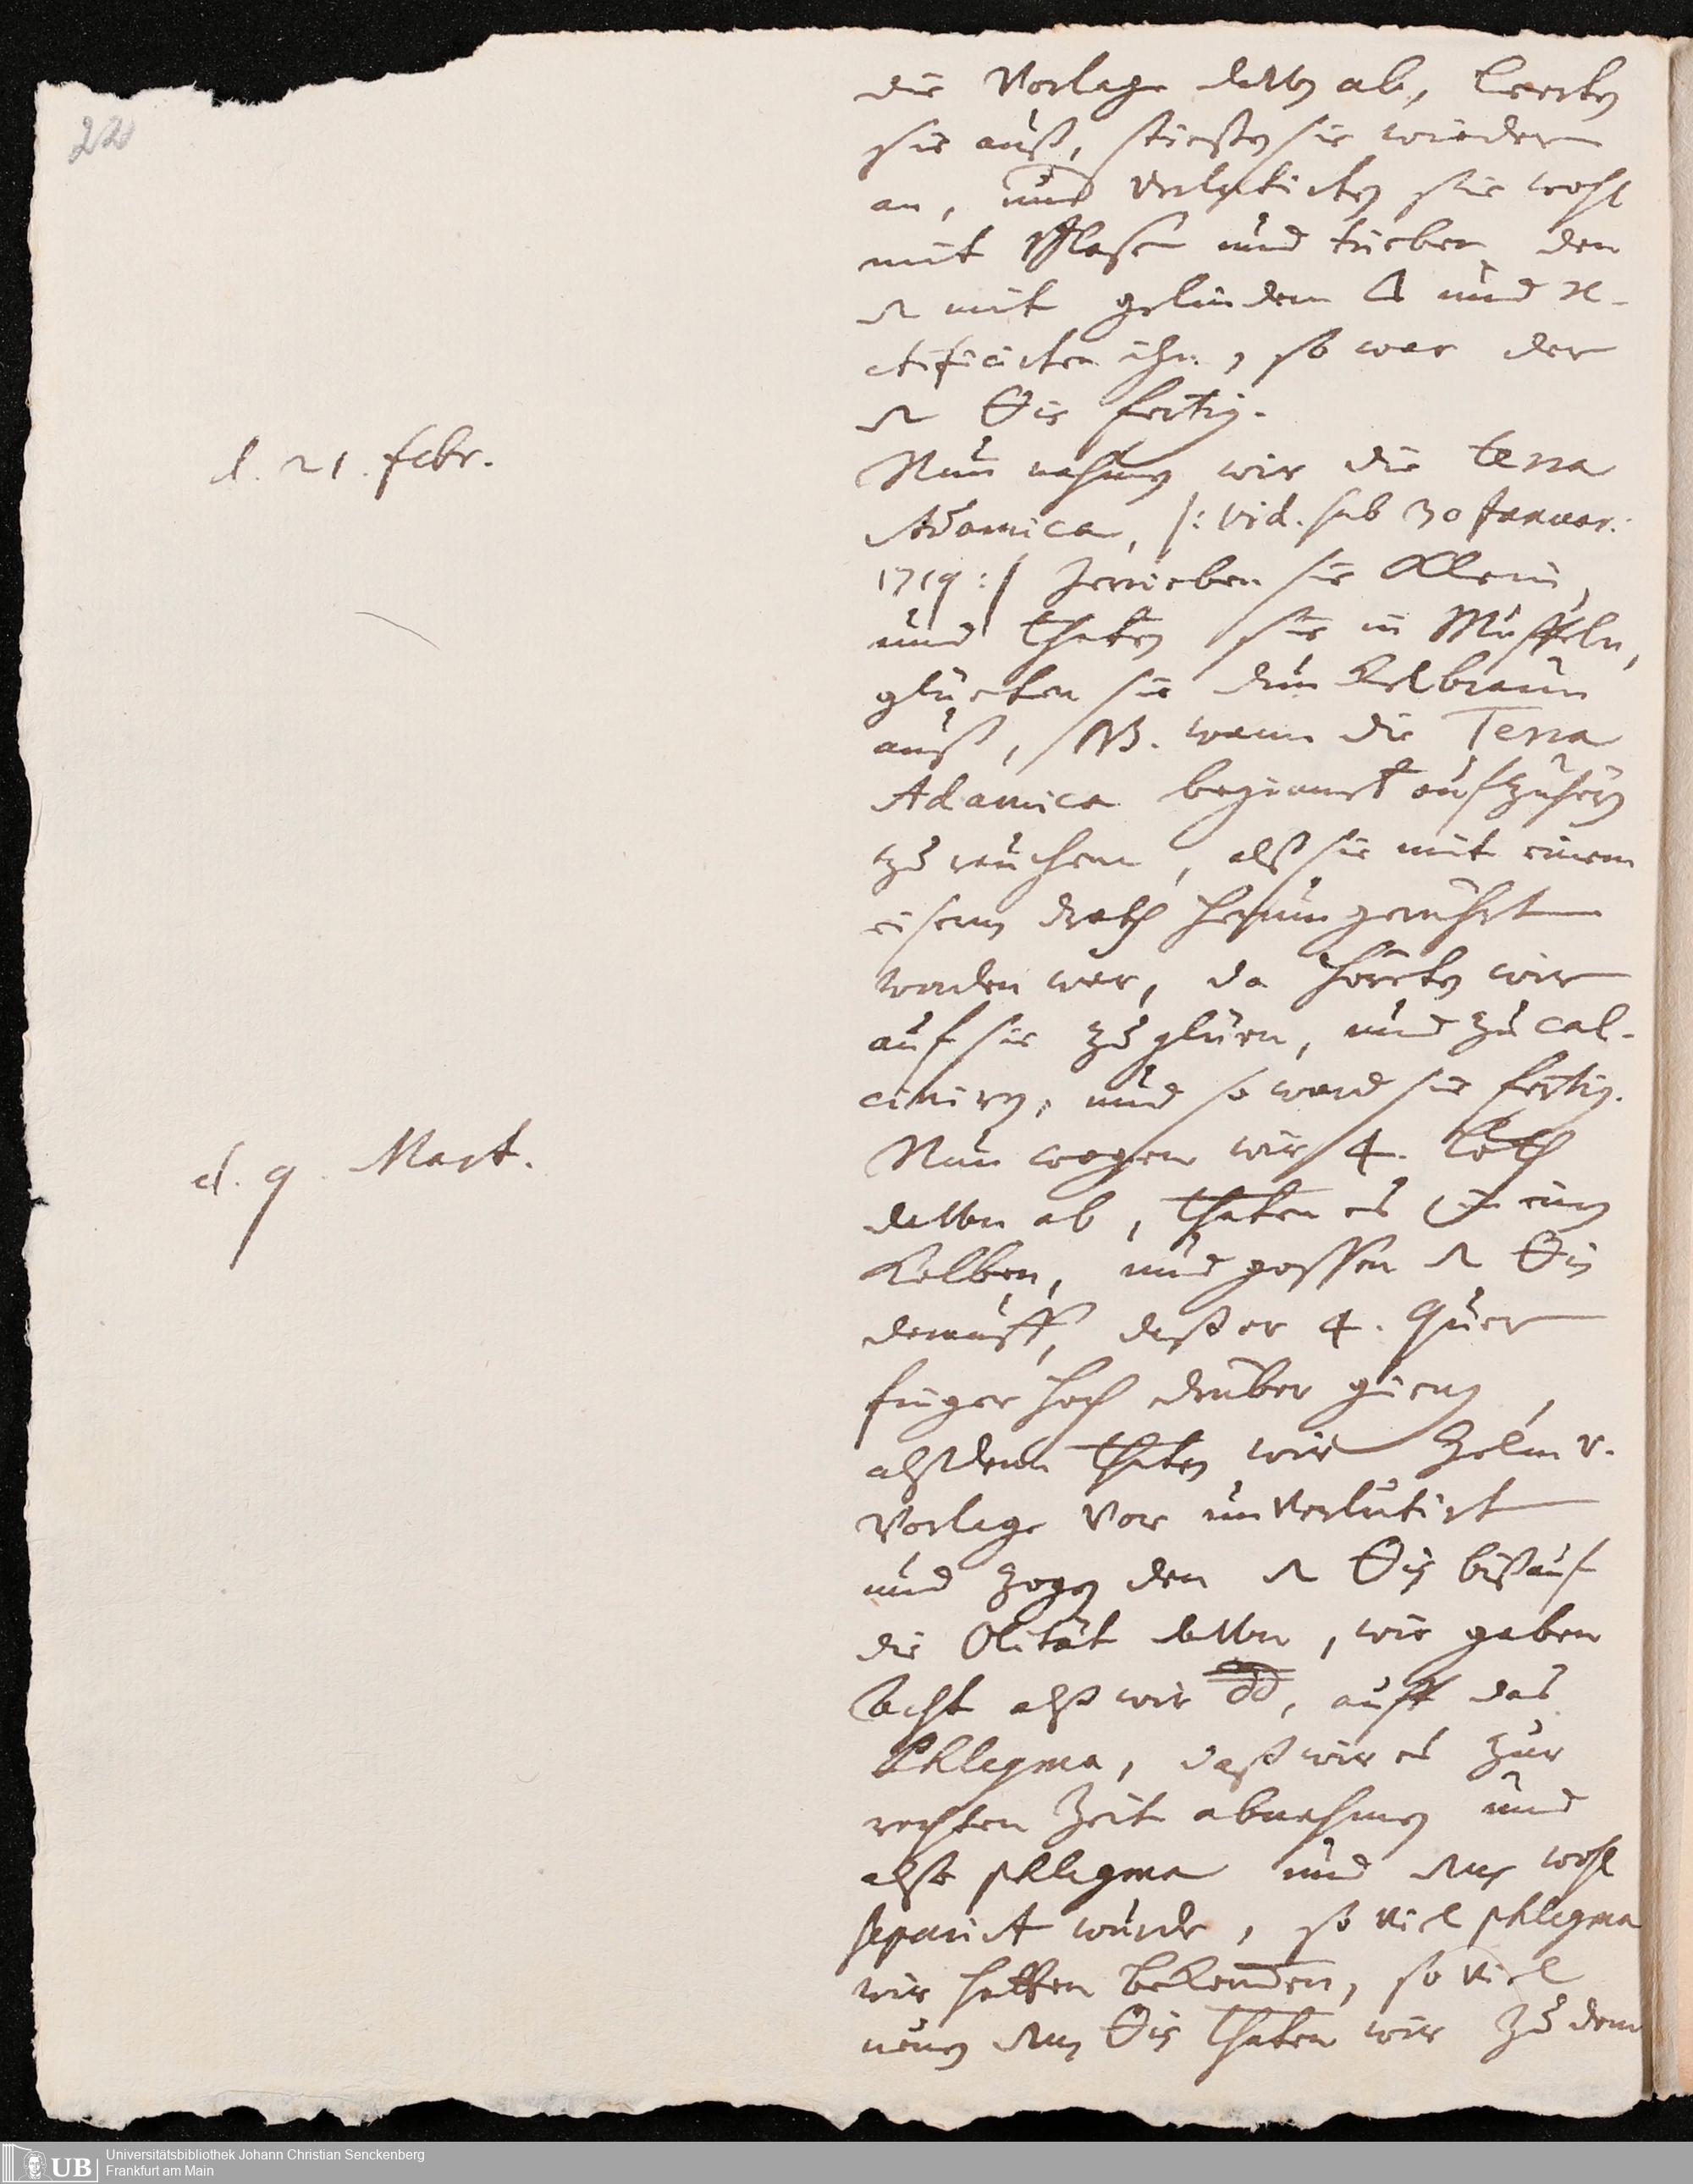 22
die Vorlage davon ab, leerten
sie auß, stießen sie wieder
an, und verlutirten sie wohl
mit Blasen und trieben den
mit gelindem 🜂 und re-
ctificirten ihn, so war der
🜔is fertig.
d. 21. febr.
Nun nahmen wir die terra
Adamica, /: vid. sub 30 Januar.
1719 :/ zerrieben sie klein,
und thaten sie in Muffeln,
glüeten sie dunkelbraun
auß, NB. wann die Terra
Adamica beginnet aufzuhören
zu rauchen, alß sie mit einem
eisern drath herumgerührt
worden war, da höreten wir
auf sie zu glüen, und zu cal-
ciniren, und so ward sie fertig.
d. 9. Mart.
Nun wogen wir 4. Loth
davon ab, thaten es in einen
Kolben, und gossen 🜔is
darauff, daß er 4. Quer
finger hoch drüber gieng,
alßdann thaten wir Helm v.
Vorlage vor unverlutirt
und zogen den 🜔is biß auf
die Olität davon, wir gaben
acht alß wir , auff das
Phlegma, daß wir es zur
rechten Zeit abnahmen und
also phlegma und wohl
separirt wurde, so viel phlegma
wir hatten bekommen, so viel
neuen 🜔is thaten wir zu dem
Universitätsbibliothek Johann Christian Senckenberg
Frankfurt am Main
UB